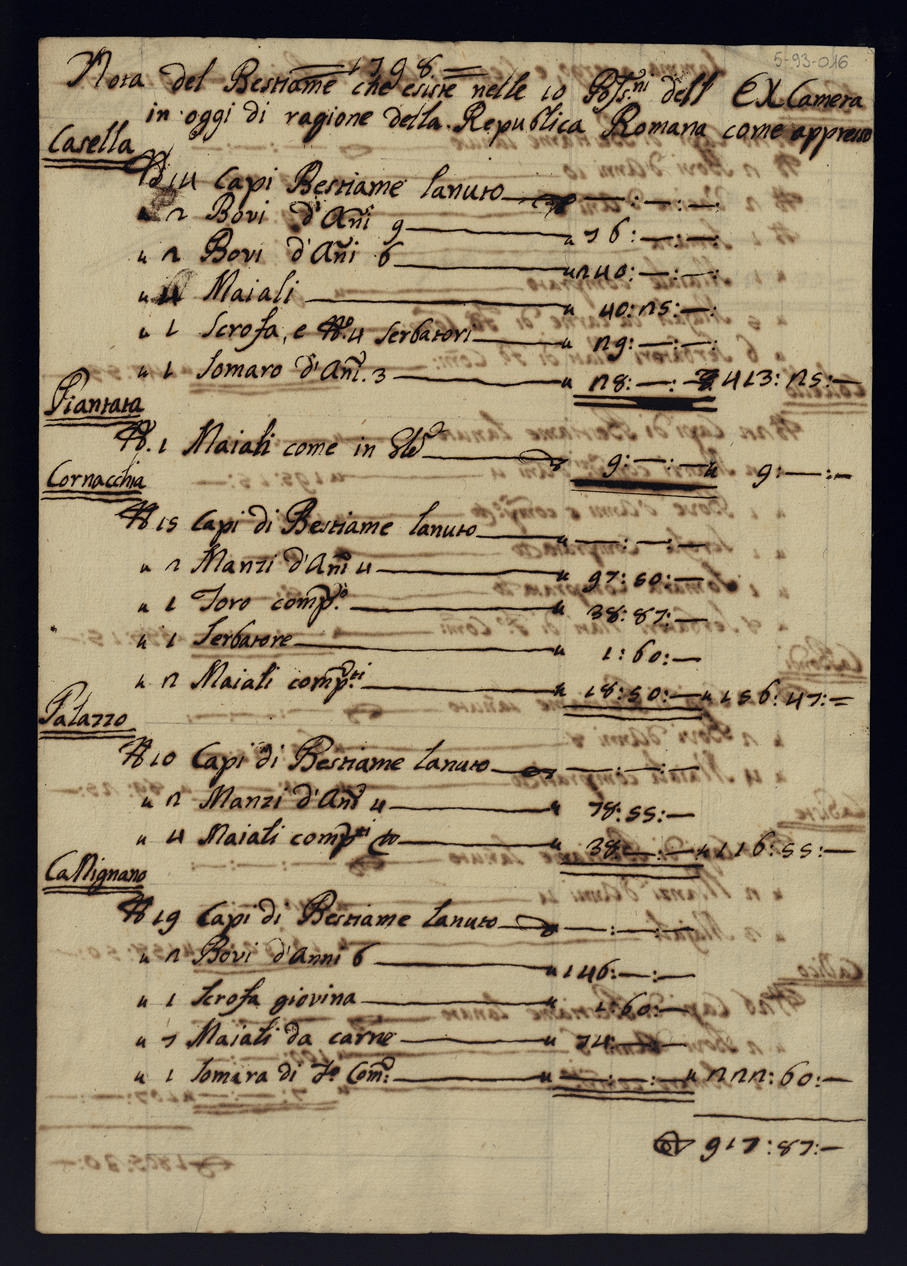 5-93-016
= 1798 =
Nota del Bestiame che esiste nelle 10 Poss.ni dell' Ex Camera
in oggi di ragione della Republica Romana come appresso
Casella
N 14 Capi Bestiame lanuto — :— :—
" 2 Bovi d'Ani 9 — " 76:—:—
" 2 Bovi d'Ani 6 — " 240:—:—
" 4 Maiali — " 40:25:—
" 1 Scrofa, e No. 4 Serbatori — " 29:—:—
" 1 Somaro d'Ani. 3 — " 28:—:— 413:25:—
Piantata
No. 1 Maiali come in — 9:—:— " 9:—:—
Cornacchia
N 15 Capi di Bestiame lanuto — " —:—:—
" 2 Manzi d'Ani 4 — " 97:50:—
" 1 Toro comp.o — " 38:87:—
" 1 Serbatore — " 1:60:—
" 2 Maiali comp.ti — " 18:50:— " 156:47:=
Palazzo
N 10 Capi di Bestiame lanuto — —:—:—
" 2 Manzi d'Ani 4 — " 78:55:—
" 4 Maiali comp.ti — " 38:—:— " 116:55:—
Callignano
N 19 Capi di Bestiame lanuto — —:—:—
" 2 Bovi d'Anni 6 — " 146:—:—
" 1 Scrofa giovina — " 2:60:—
" 7 Maiali da carne — " 74:—:—
" 1 Somara di Com: — " —:—:— " 222:60:—
917:87:—